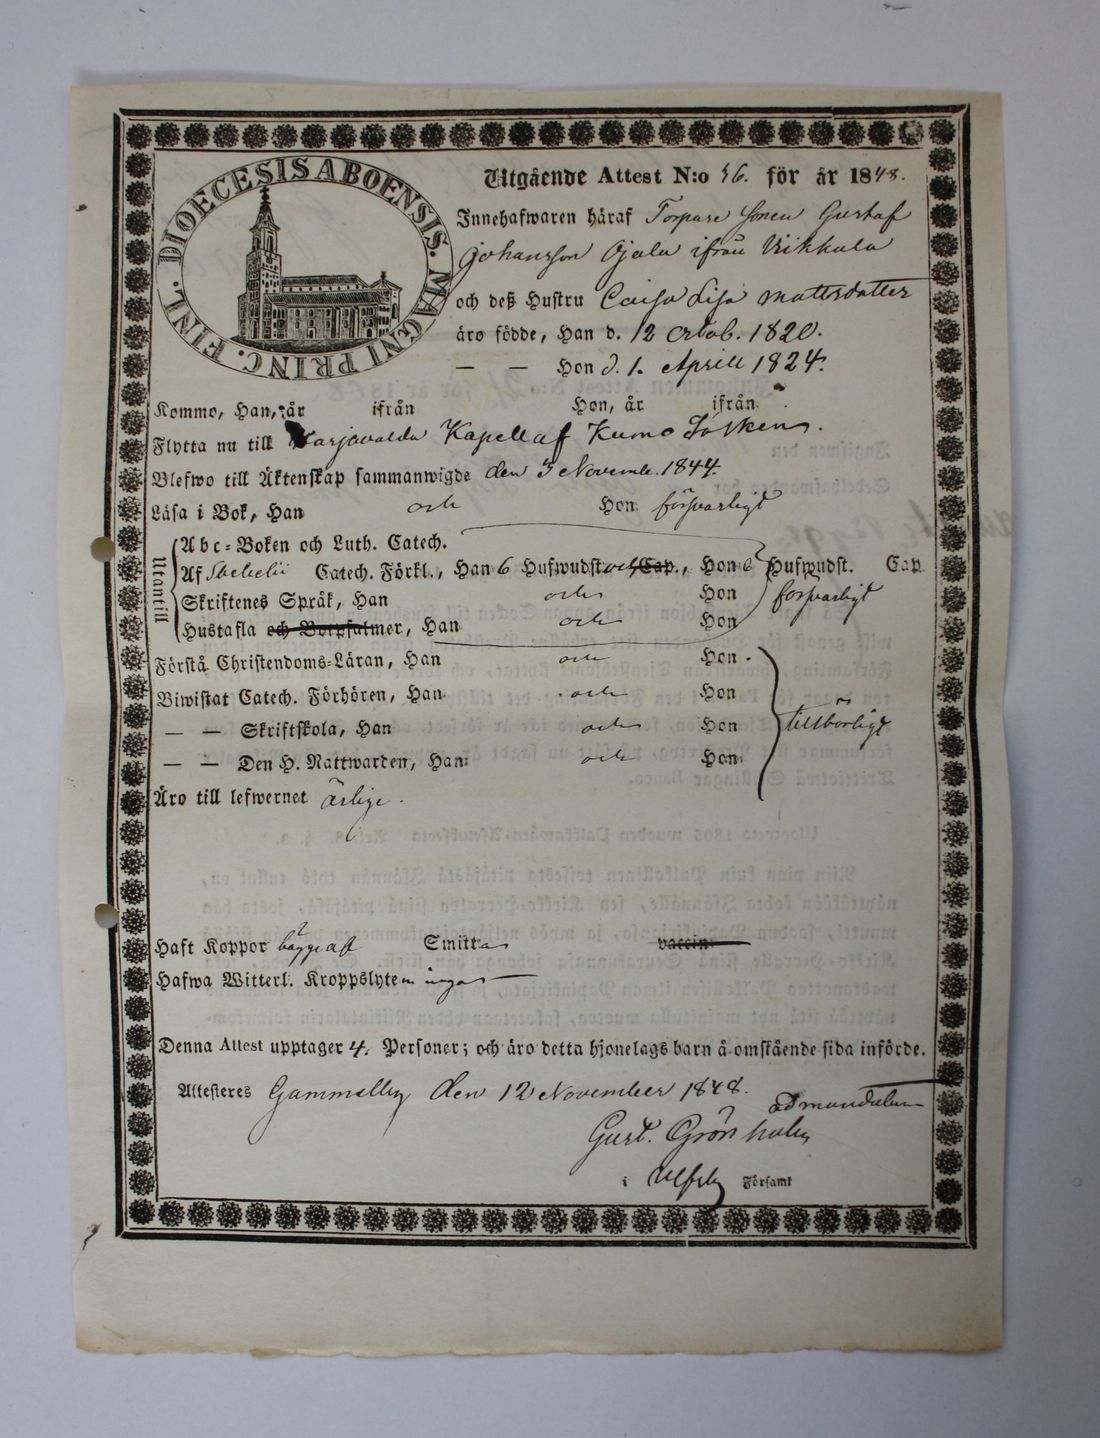 DIOECESIS ABOENSIS. MAGNI PRINC. FINL.
Utgående Attest N:o 56. för år 1848.
Innehafwaren häraf Torpare sonen Gustaf
Johansson Ojala ifrån Wikkala
och deß Hustru Caisa Lisa Mattsdotter
äro födde, Han d. 12 Octob. 1820.
— — Hon d. 1. Aprill 1824.
Kommo, Han, år ifrån Hon, år ifrån
Flytta nu till Harjavalda Kapell af Kumo Socken.
Blefwo till Äktenskap sammanwigde den 3 Novemb. 1844.
Läsa i Bok, Han och Hon försvarligt
Utantill
Abc-Boken och Luth. Catech.
Af Svebelii Catech. Förkl., Han 6 Hufwudst. och Cap., Hon 6 Hufwudst. Cap
Skriftenes Språk, Han och Hon försvarligt
Hustafla och Botpsalmer, Han och Hon
Förstå Christendoms-Läran, Han och Hon
Biwistat Catech. Förhören, Han och Hon
— — Skriftskola, Han och Hon tillbörligt
— — Den H. Nattwarden, Han och Hon
Äro till lefwernet ärlige.
Haft Koppor bägge af Smitta vaccin
Hafwa Witterl. Kroppslyten inga
Denna Attest upptager 4. Personer; och äro detta hjonelags barn å omstående sida införde.
Attesteres Gammelby den 12 November 1848.
Gust. Grönholm
i Ulfsby Församl